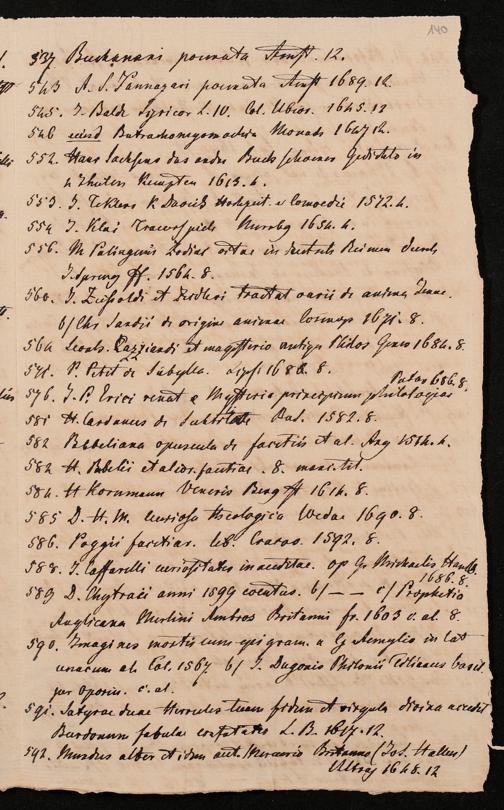 140
537 Buchanani poemata Amst. 12.
543 A. S. Sannazari poemata Amst 1689. 12
545. J. Balde Lyricor L. IV. Col. Ubior. 1645. 12
546 eiusd Batrachomyomachia Monach 1647 12.
552. Hans Sachsens das ander Buch schoener Gedichte in
4 theilen Kempten 1613. 4.
553. J. K David Hochzeit Comoedie 1572. 4.
554 J. Klai Trauerspiele Nurnbg 1654. 4.
556. M Palingenii Zodiac vitae in deutsch Reimen durch
J. Spreng ff. 1564. 8.
560. J. Zeipoldi et tractat varii de anima
b/ Chr Sandii de origine animae Cosmop 1671. 8.
564 Leonh. et magisterio antiq Philos Genev 1684. 8
571. P. Petit de Sibylla. Lips 1686. 8.
576. J. P. Erici renat e Mysterio principium philologiae
Patav 686. 8.
581 H. Cardanus de Subtilitate Bas. 1582. 8.
582 Bebeliana opuscula de facetiis et al. Arg 1514. 4.
583 H. Bebelii et alior. facetiae. 8. manc. tit.
584. H Kornmann Veneris Berg ff 1614. 8.
585 D. H. M. curiosa theologica Wedae 1690. 8.
586. Poggii facetiar. lib. Cracov. 1592. 8.
588. J. Caffarelli curiositates inauditae. op Gr Michaelis Hamb.
1686. 8.
589 D. Chytraei anni 1599 eventus. b/ — — c/ Prophetia
Anglicana Merlini Ambros Britanni fr. 1603 c. al. 8.
590. Imagines mortis cum epigram. a G Aemylio in lat
versae c. al. Col. 1567. b/ J. Dugonis Philonii basil.
per Oporin. c. al.
591. Satyrae duae Hercules tuam fidem et virgula divina accedit
Burdonum fabulae confutatio L. B. 1617. 12.
592. Mundus alter et idem aut. Mercurio Britanno (Jos. Hallen)
Ultraj 1648. 12